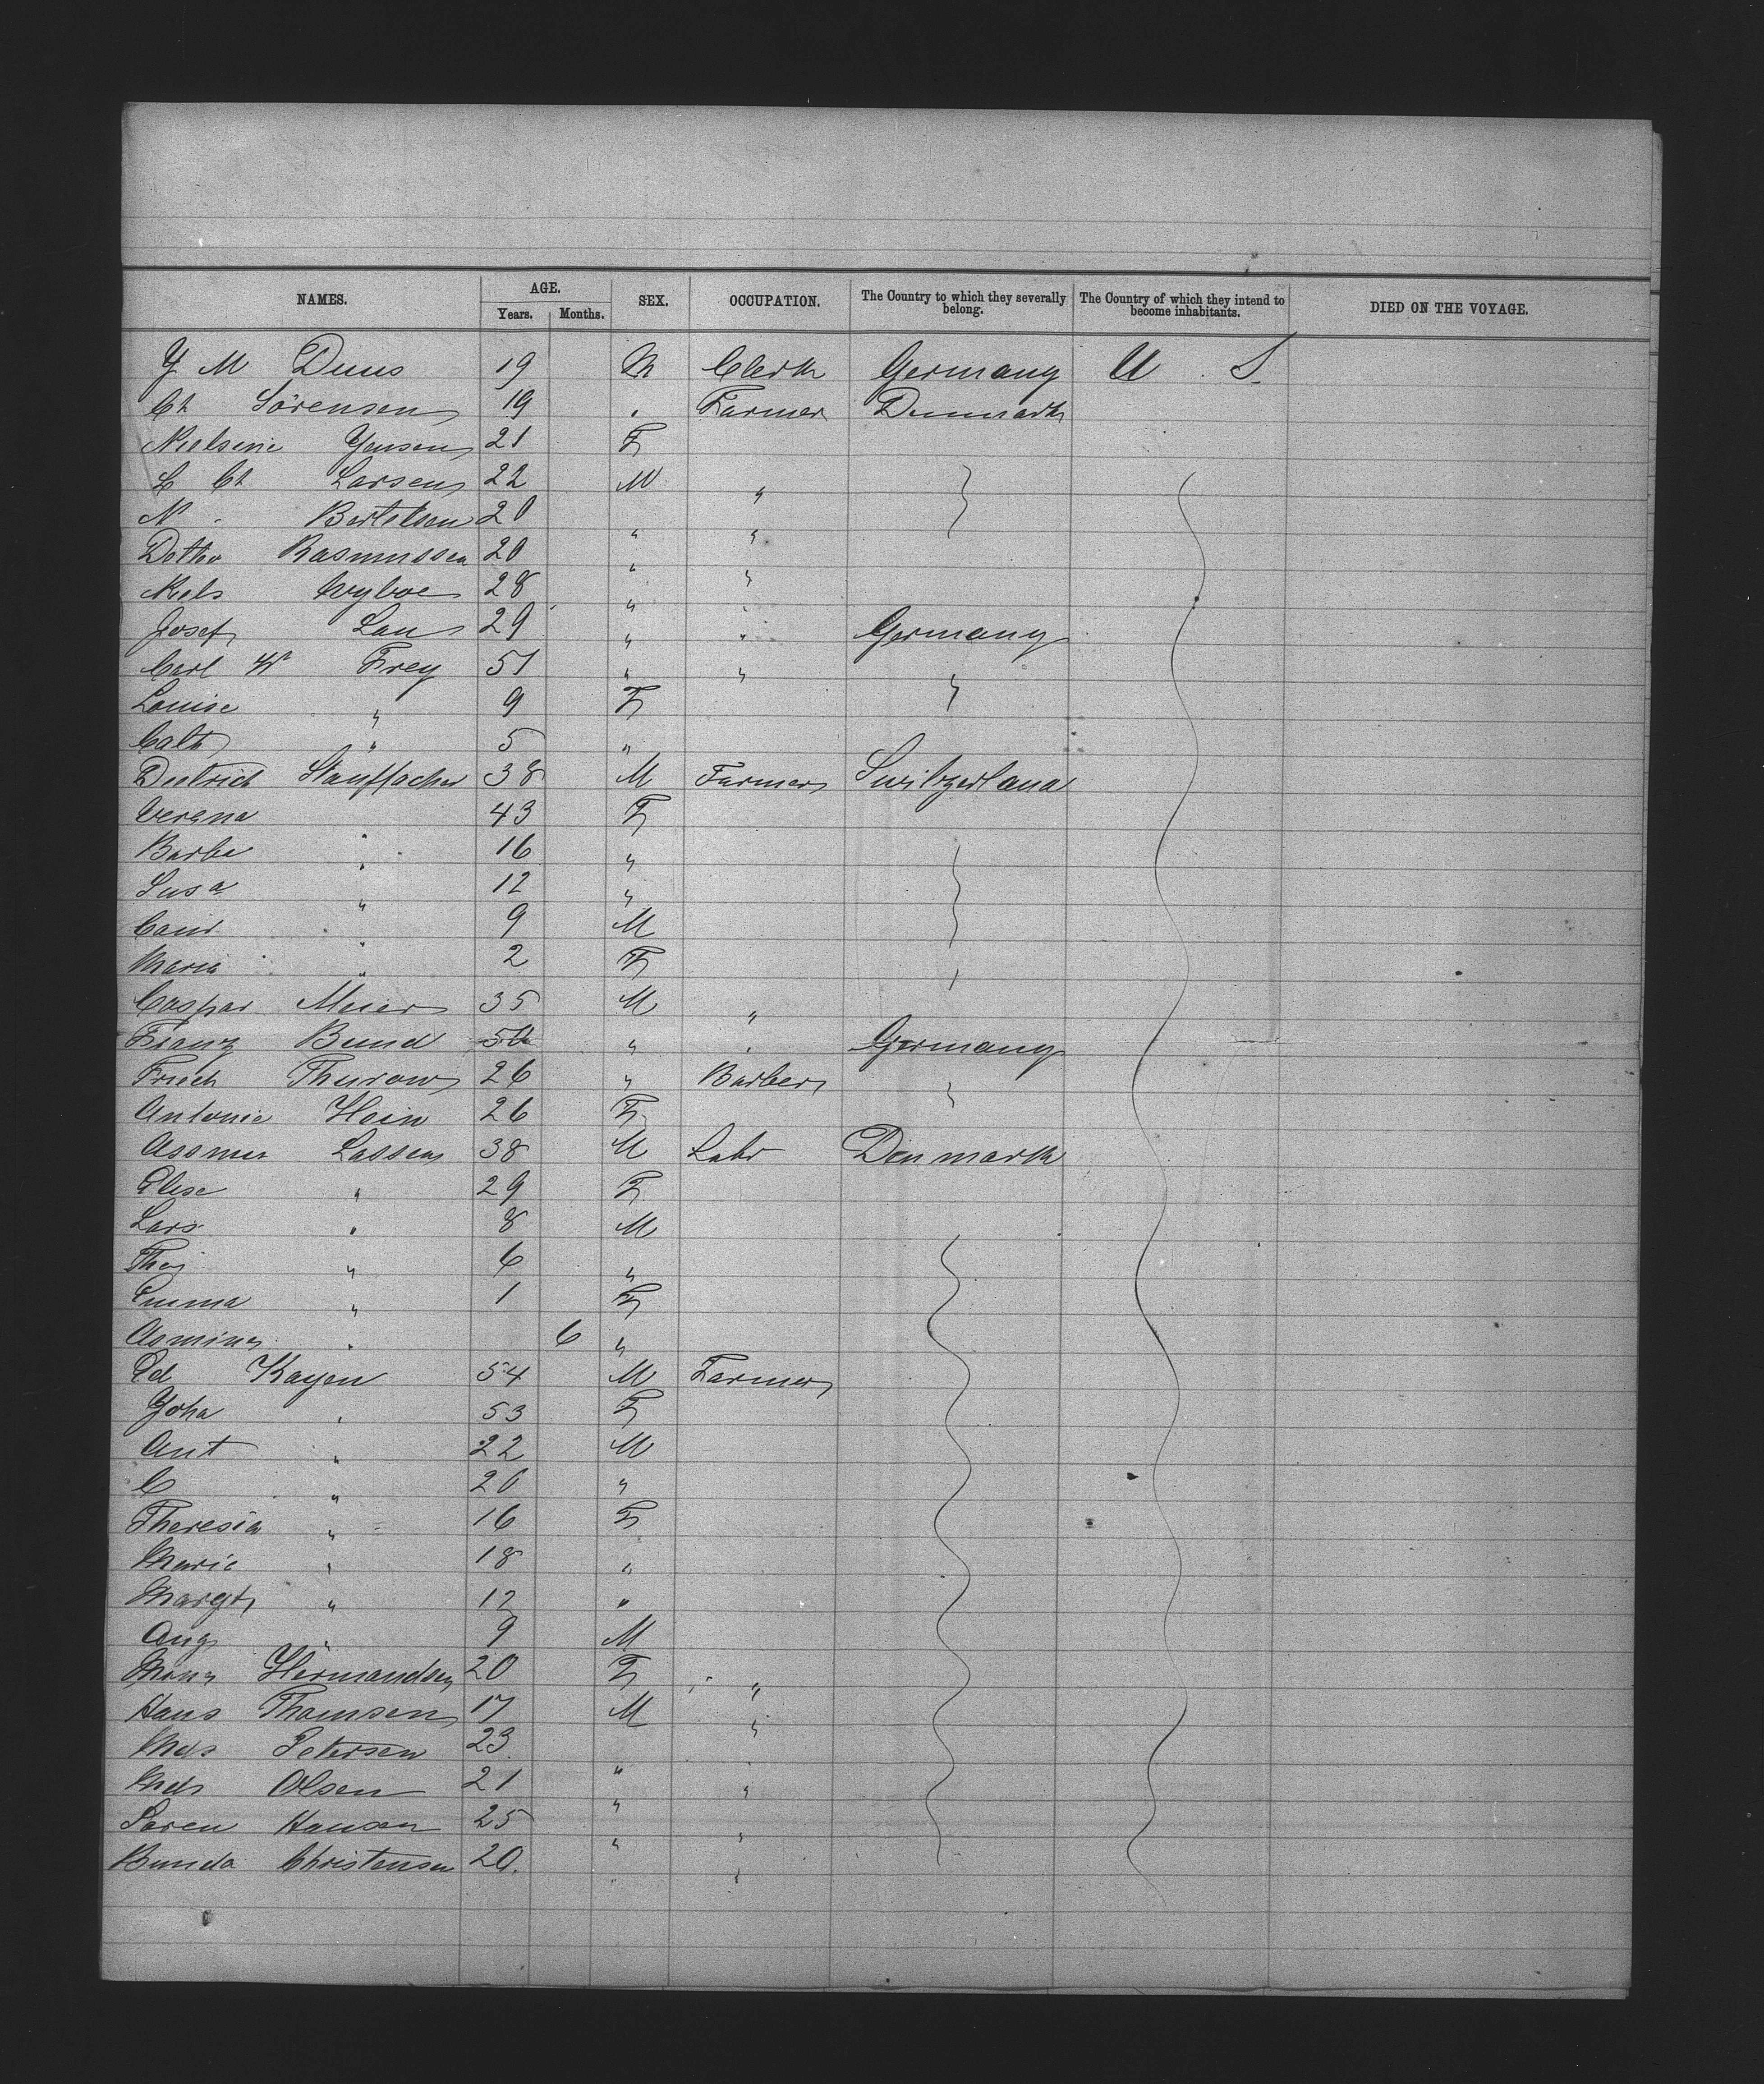 NAMES. AGE. SEX. OCCUPATION. The Country to which they severally belong. The Country of which they intend to become inhabitants. DIED ON THE VOYAGE.
Years. Months.
Y M Duus 19 M Clerk Germany U. S.
Ch Sörensen 19 " Farmer Denmark
Nielsine Yensen 21 F
L Ch Larsen 22 M "
N Bertelsen 20 " "
Rasmussen 20 " "
Niels 28 " "
Josef Lau 29 " " Germany
Carl W Frey 51 " " "
Louise " 9 F
Cath " 5 "
Dietrich Stauffacher 38 M Farmer Switzerland
Verena " 43 F
Barba " 16 "
Susa " 12 "
" 9 M
Maria " 2 F
Caspar Meier 35 M "
Franz Bund " " Germany
Friedh Thurow 26 " Barber "
Antonie Hein 26 F
Assmus Lassen 38 M Labr Denmark
Elise " 29 F
Lars " 8 M
Ths " 6 "
Emma " 1 F
" 6 "
Ed Kayen 54 M Farmer
Yoha " 53 F
Ant " 22 M
C " 20 "
Theresia " 16 F
Marie " 18 "
Margt " 12 "
Aug " 9 M
Hermandsen 20 F "
Hans Thomsen 17 M "
Mds Petersen 23 " "
Mds Olsen 21 " "
Soren Hansen 25 " "
Christensen 20. " "